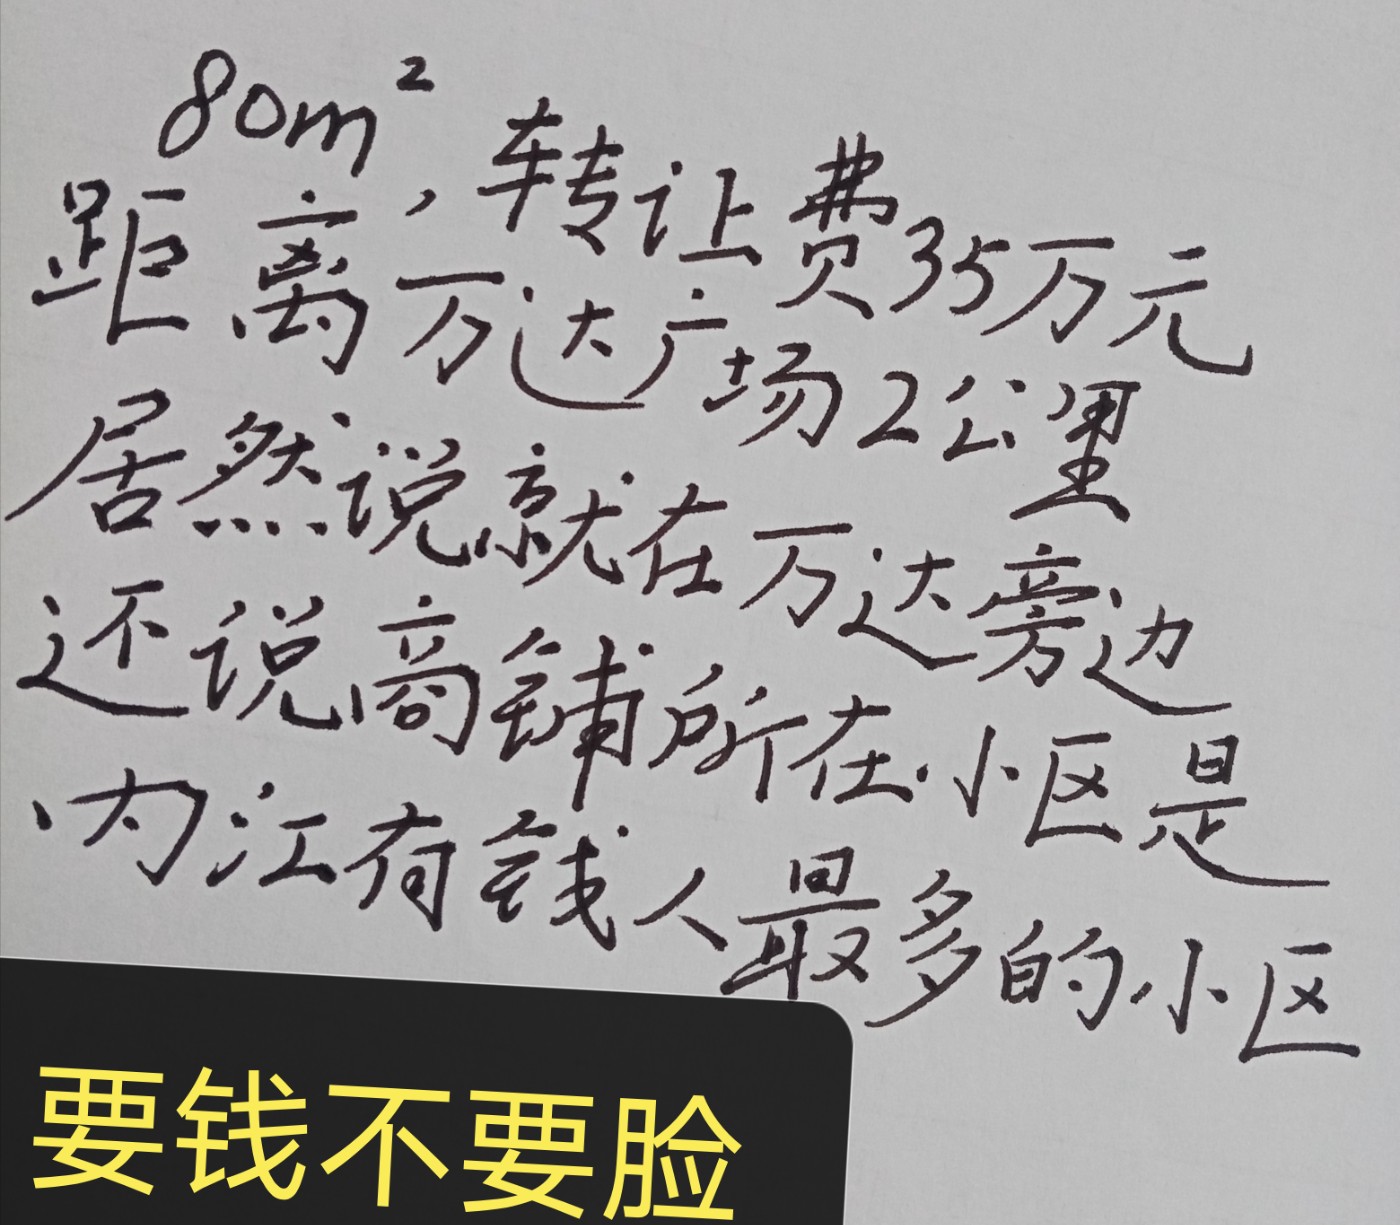 80m²，转让费35万元
距离万达广场2公里
居然说就在万达旁边
还说商铺所在小区是
内江有钱人最多的小区
要钱不要脸